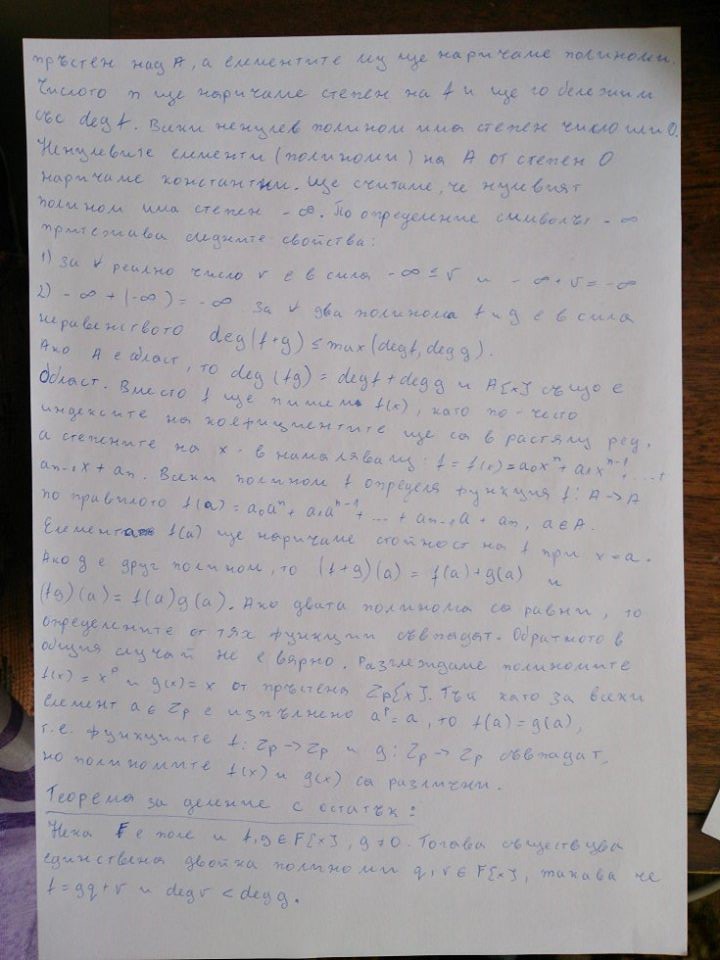 пръстен над A, а елементите му ще наричаме полиноми.
Числото n ще наричаме степен на f и ще го бележим
със deg f. Всеки ненулев полином има степен число или 0.
Ненулевите елементи (полиноми) на A от степен 0
наричаме константни. Ще считаме, че нулевият
полином има степен -∞. По определение символът -∞
притежава следните свойства:
1) За ∀ реално число r е в сила -∞ ≤ r и -∞ + r = -∞
2) -∞ + (-∞) = -∞ За ∀ два полинома f и g е в сила
неравенството deg(f+g) ≤ max(deg f, deg g).
Ако A е област, то deg(fg) = deg f + deg g и A[x] също е
област. Вместо f ще пишем f(x), като по-често
индексите на коефициентите ще са в растящ ред,
а степените на x - в намаляващ: f = f(x) = a₀xⁿ + a₁xⁿ⁻¹ + ... +
aₙ₋₁x + aₙ. Всеки полином f определя функция f: A → A
по правилото f(a) = a₀aⁿ + a₁aⁿ⁻¹ + ... + aₙ₋₁a + aₙ, a ∈ A.
Елемента f(a) ще наричаме стойност на f при x = a.
Ако g е друг полином, то (f+g)(a) = f(a) + g(a) и
(fg)(a) = f(a)g(a). Ако двата полинома са равни, то
определените от тях функции съвпадат. Обратното в
общия случай не е вярно. Разглеждаме полиномите
f(x) = xᵖ и g(x) = x от пръстена Zp[x]. Тъй като за всеки
елемент a ∈ Zp е изпълнено aᵖ = a, то f(a) = g(a),
т.е. функциите f: Zp → Zp и g: Zp → Zp съвпадат,
но полиномите f(x) и g(x) са различни.
Теорема за деление с остатък:
Нека F е поле и f, g ∈ F[x], g ≠ 0. Тогава съществува
единствена двойка полиноми q, r ∈ F[x], такава че
f = gq + r и deg r < deg g.